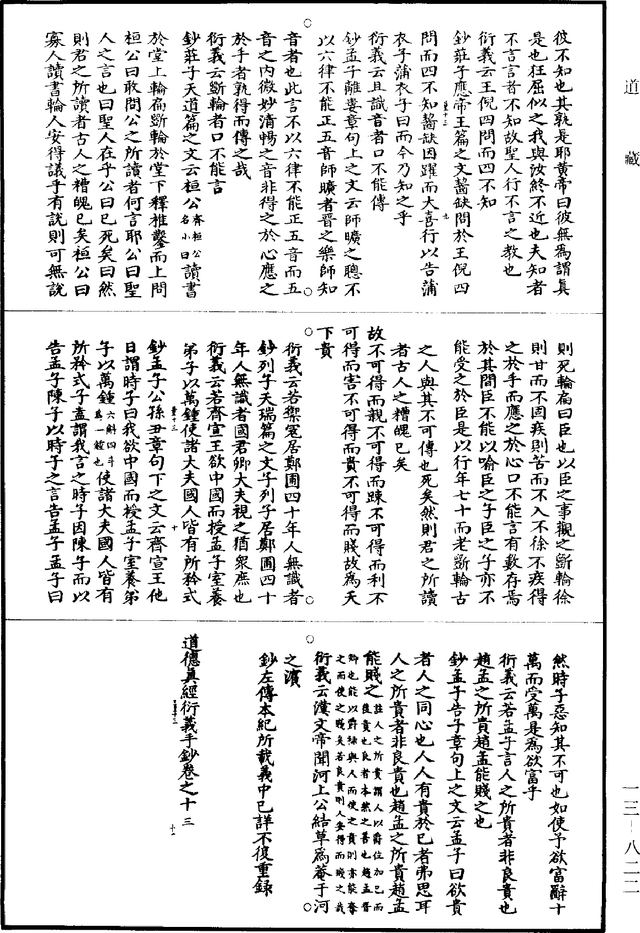 道藏
彼不知也其孰是耶黄帝曰彼無為謂真
是也狂屈似之我與汝終不近也夫知者
不言言者不知故聖人行不言之教也
衍義云王倪四問而四不知
鈔莊子應帝王篇之文齧缺問於王倪四
問而四不知齧缺因躍而大喜行以告蒲
衣子蒲衣子曰而今乃知之乎
衍義云且識音者口不能傳
鈔孟子離婁章句上之文云師曠之聰不
以六律不能正五音師曠者晉之樂師知
音者也此言不以六律不能正五音而五
音之内微妙清暢之音非得之於心應之
於手者孰得而傳之哉
衍義云斲輪者口不能言
鈔莊子天道篇之文云桓公齊桓公名小白讀書
於堂上輪扁斲輪於堂下釋椎鑿而上問
桓公曰敢問公之所讀者何言耶公曰聖
人之言也曰聖人在乎公曰已死矣曰然
則君之所讀者古人之糟魄已矣桓公曰
寡人讀書輪人安得議乎有說則可無說
則死輪扁曰臣也以臣之事觀之斲輪徐
則甘而不固疾則苦而不入不徐不疾得
之於手而應之於心口不能言有數存焉
於其間臣不能以喻臣之子臣之子亦不
能受之於臣是以行年七十而老斲輪古
之人與其不可傳也死矣然則君之所讀
者古人之糟魄已矣
故不可得而親不可得而踈不可得而利不
可得而害不可得而貴不可得而賤故為天
下貴
衍義云若禦寇居鄭圃四十年人無識者
鈔列子天瑞篇之文子列子居鄭圃四十
年人無識者國君卿大夫視之猶衆庶也
衍義云若齊宣王欲中國而授孟子室養
弟子以萬鍾使諸大夫國人皆有所矜式
鈔孟子公孫丑章句下之文云齊宣王他
日謂時子曰我欲中國而授孟子室養弟
子以萬鍾六斛四斗為一鍾也使諸大夫國人皆有
所矜式子盍謂我言之時子因陳子而以
告孟子陳子以時子之言告孟子孟子曰
然時子惡知其不可也如使予欲富辭十
萬而受萬是為欲富乎
衍義云若孟子言人之所貴者非良貴也
趙孟之所貴趙孟能賤之也
鈔孟子告子章句上之文云孟子曰欲貴
者人之同心也人人有貴於已者弗思耳
人之所貴者非良貴也趙孟之所貴趙孟
能賤之註人之所貴謂人以爵位加己而後貴也良者本然之善也趙孟晉卿也能以爵祿與人而使之貴則亦能奪之而使之賤矣若良貴則人安得而賤之哉
衍義云漢文帝聞河上公結草為菴于河
之濱
鈔左傳本紀所載義中已詳不復重録
道德真經衍義手鈔卷之十三
一三-八二二